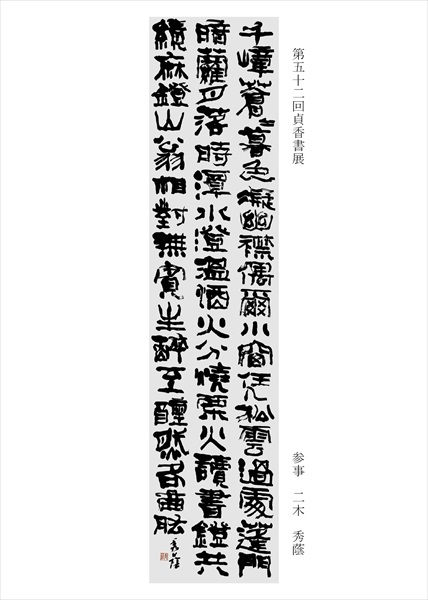 第五十二回貞香書展
参事 二木 秀蔭
千嶂蒼々暮色凝幽襟偶爾小窗凭松雲過處蓬門
暗蘿月落時潭水澄溫酒火分燒栗火讀書鐙共
績麻鐙山翁相對無賓主醉至醺然各曲肱
秀蔭